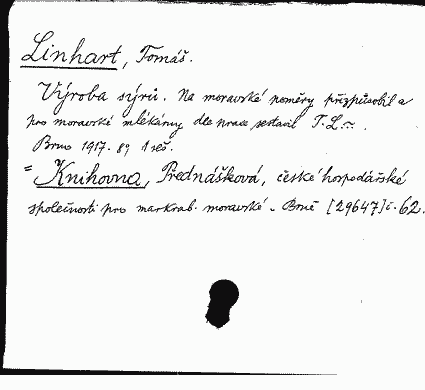 Linhart, Tomáš.
Výroba sýrů. Na moravské poměry přizpůsobil a
pro moravské mlékárny dle praxe sestavil T. L.
Brno 1917. 8° 1 seš.
= Knihovna, Přednášková, české hospodářské
společnosti pro markrab. moravské. Brně [29647] č. 62.